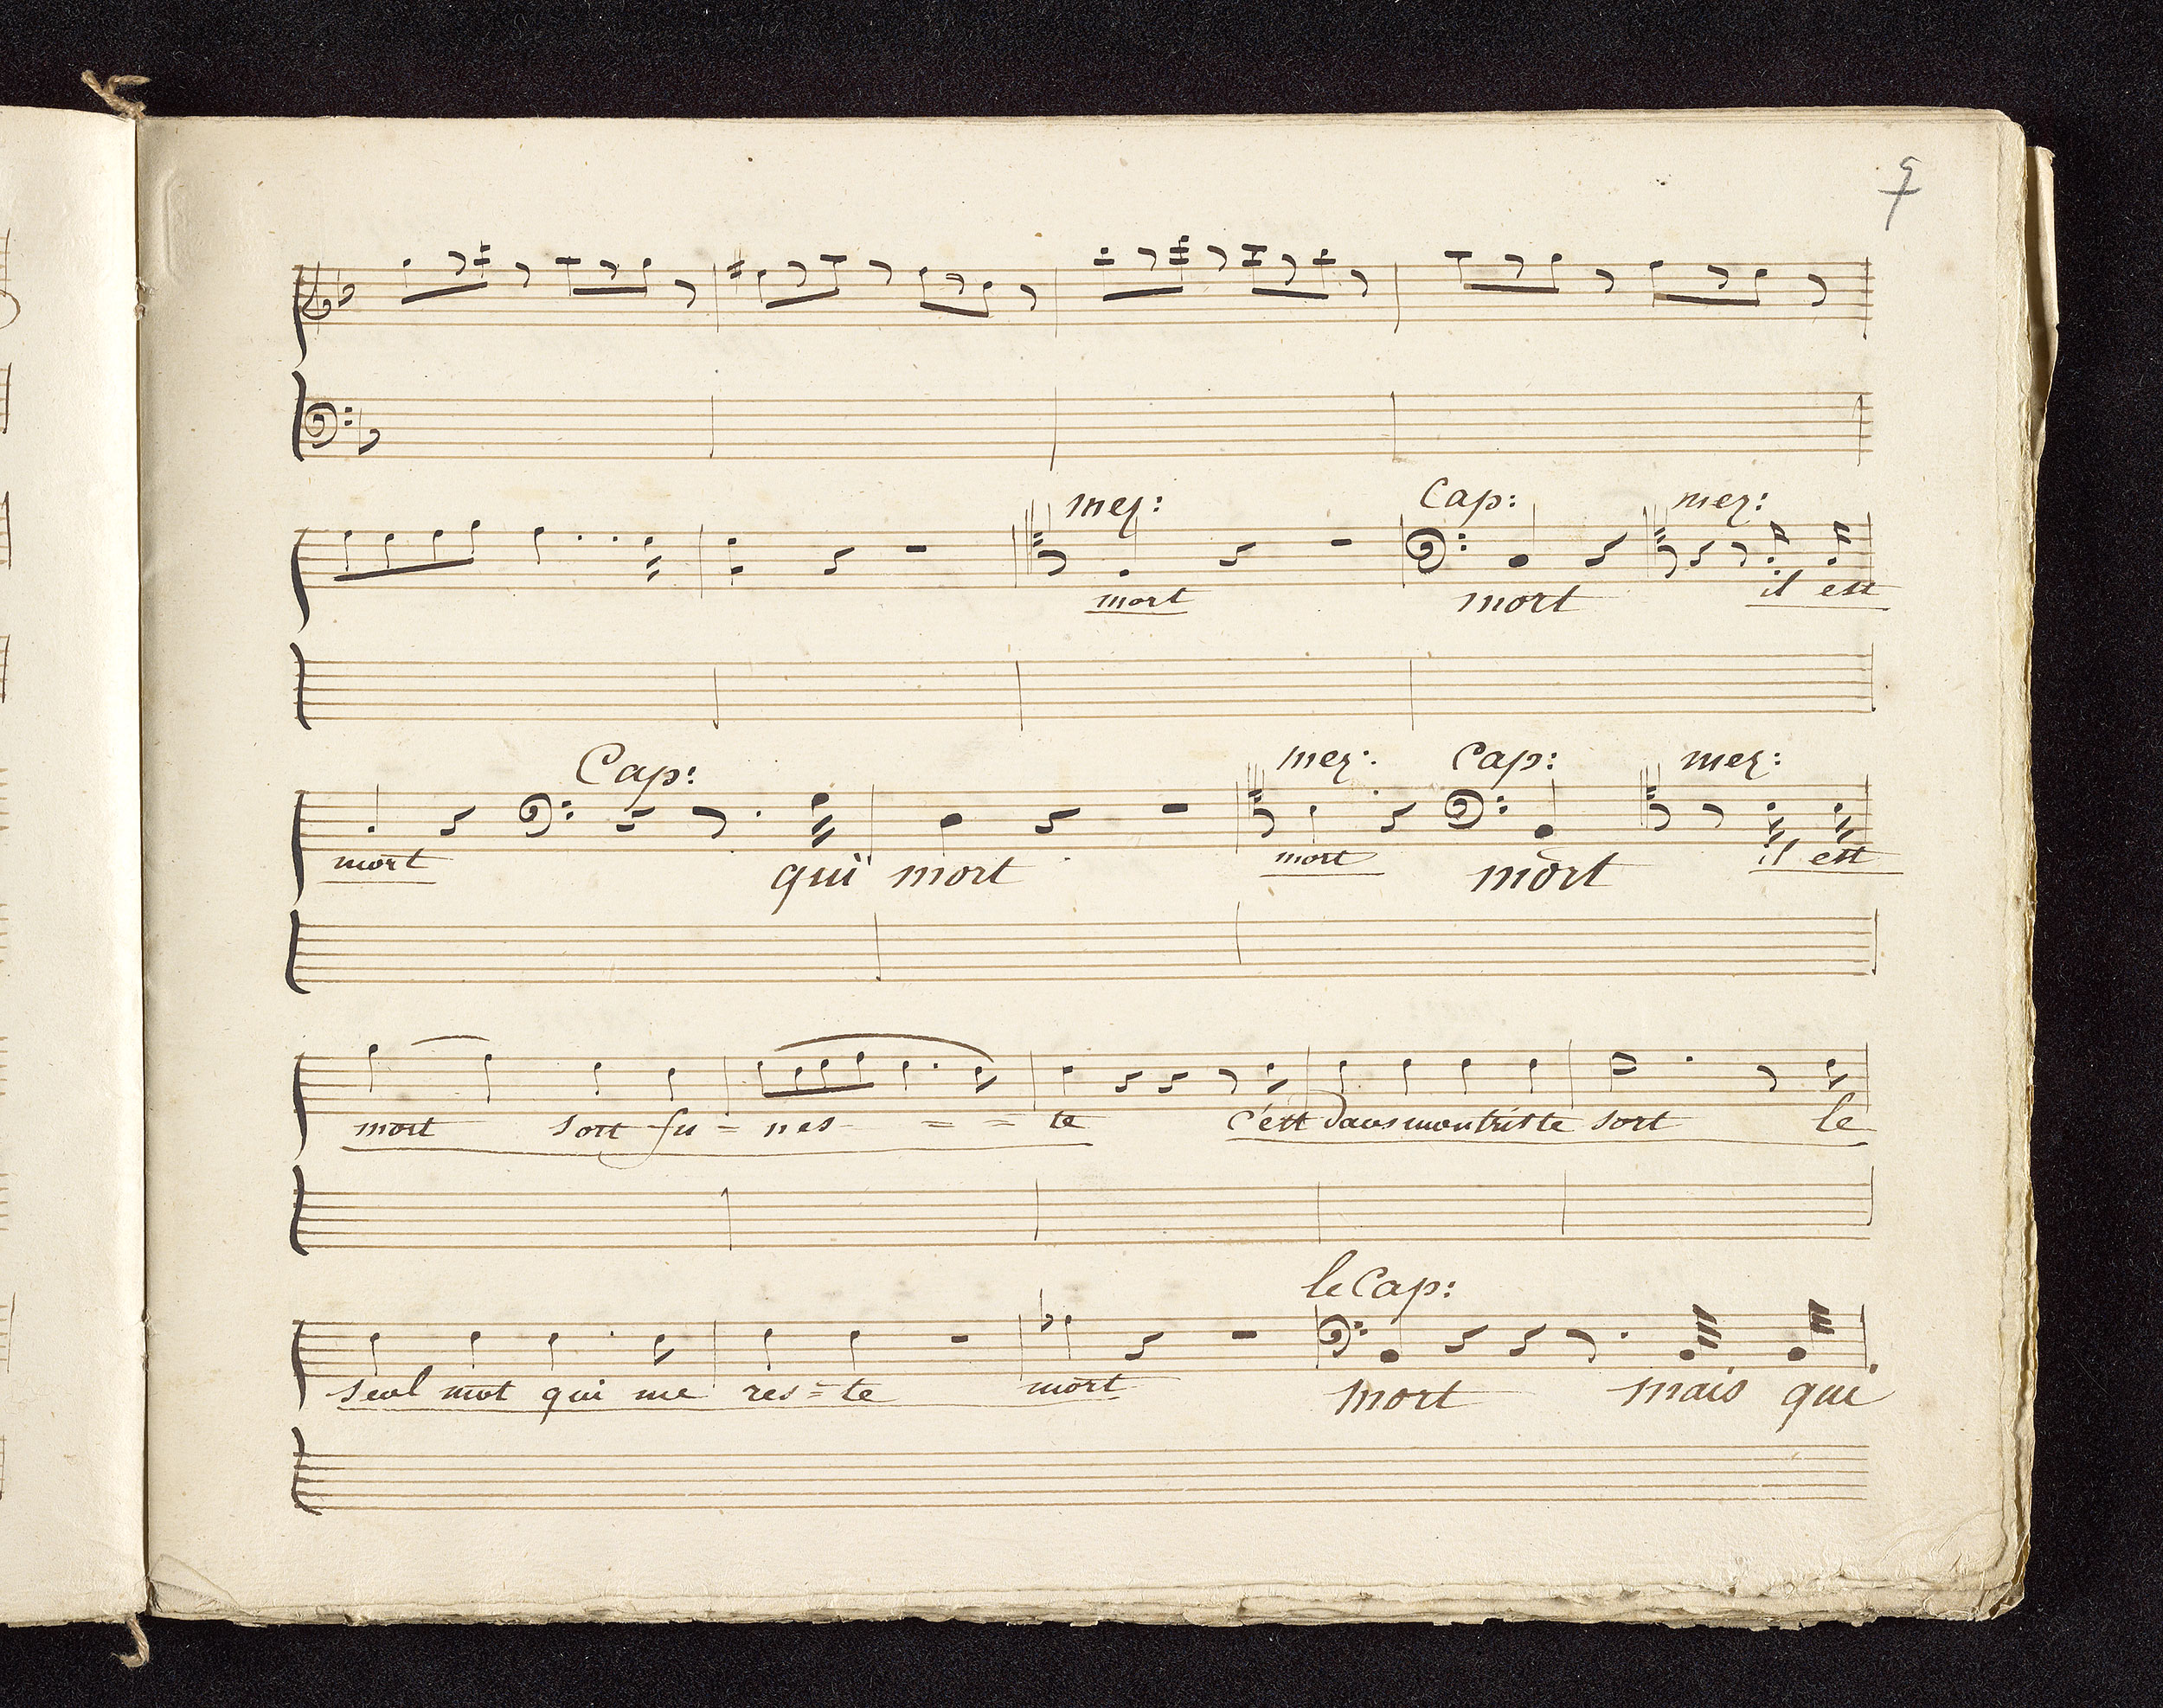 9
mez: Cap: mez:
mort mort il est
Cap: mez: Cap: mez:
mort qui mort mort mort il est
mort sort fu = nes = = te c'est dans mon triste sort le
le Cap:
seul mot qui me res = te mort mort mais qui